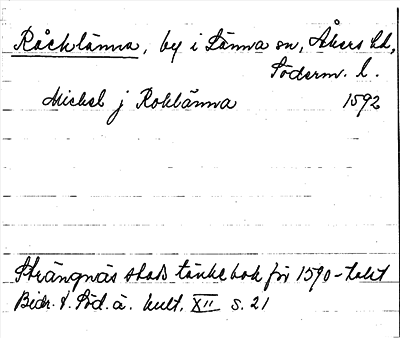 Råcklänna, by i Länna sn, Åkers hd,
Söderm. l.
Mickel j Roklänna 1592
Strängnäs stads tänkebok för 1590-talet
Bidr. t. Söd. ä. kult. XII s. 21